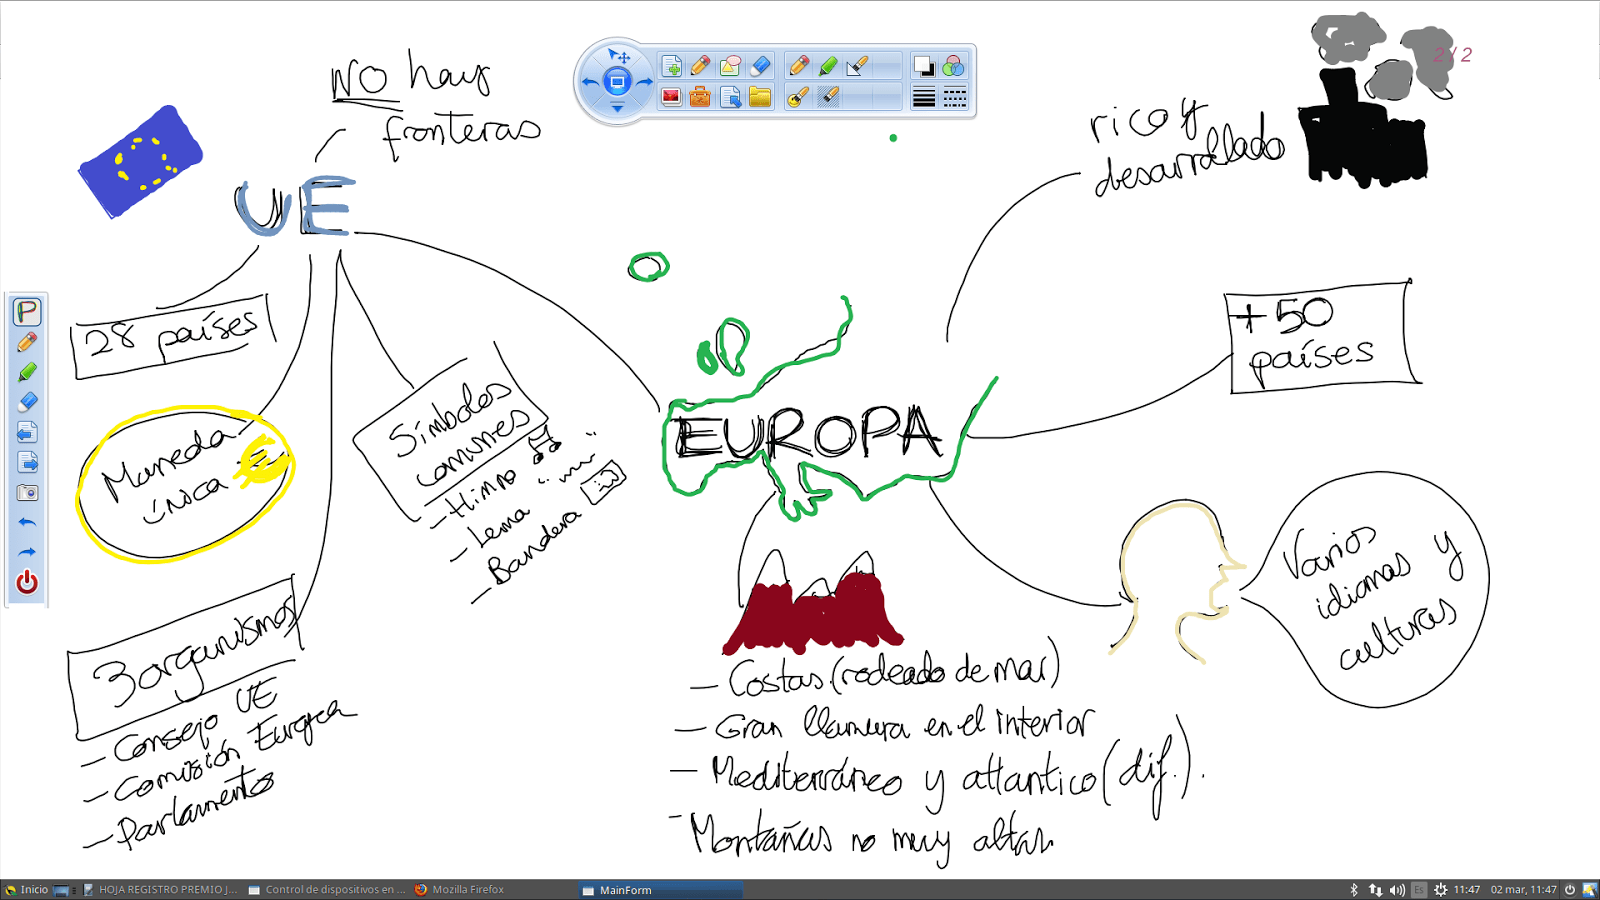 NO hay
fronteras
UE
28 países
Moneda
única €
3 organismos
- Consejo UE
- Comisión Europea
- Parlamento
Símbolos
comunes
- Himno
- Lema
- Bandera
EUROPA
rico y
desarrollado
2 / 2
+ 50
países
Varios
idiomas y
culturas
- Costas (rodeado de mar)
- Gran llanura en el interior
- Mediterráneo y atlantico (dif.).
- Montañas no muy altas.
Inicio
HOJA REGISTRO PREMIO J...
Control de dispositivos en ...
Mozilla Firefox
MainForm
Es
11:47
02 mar, 11:47